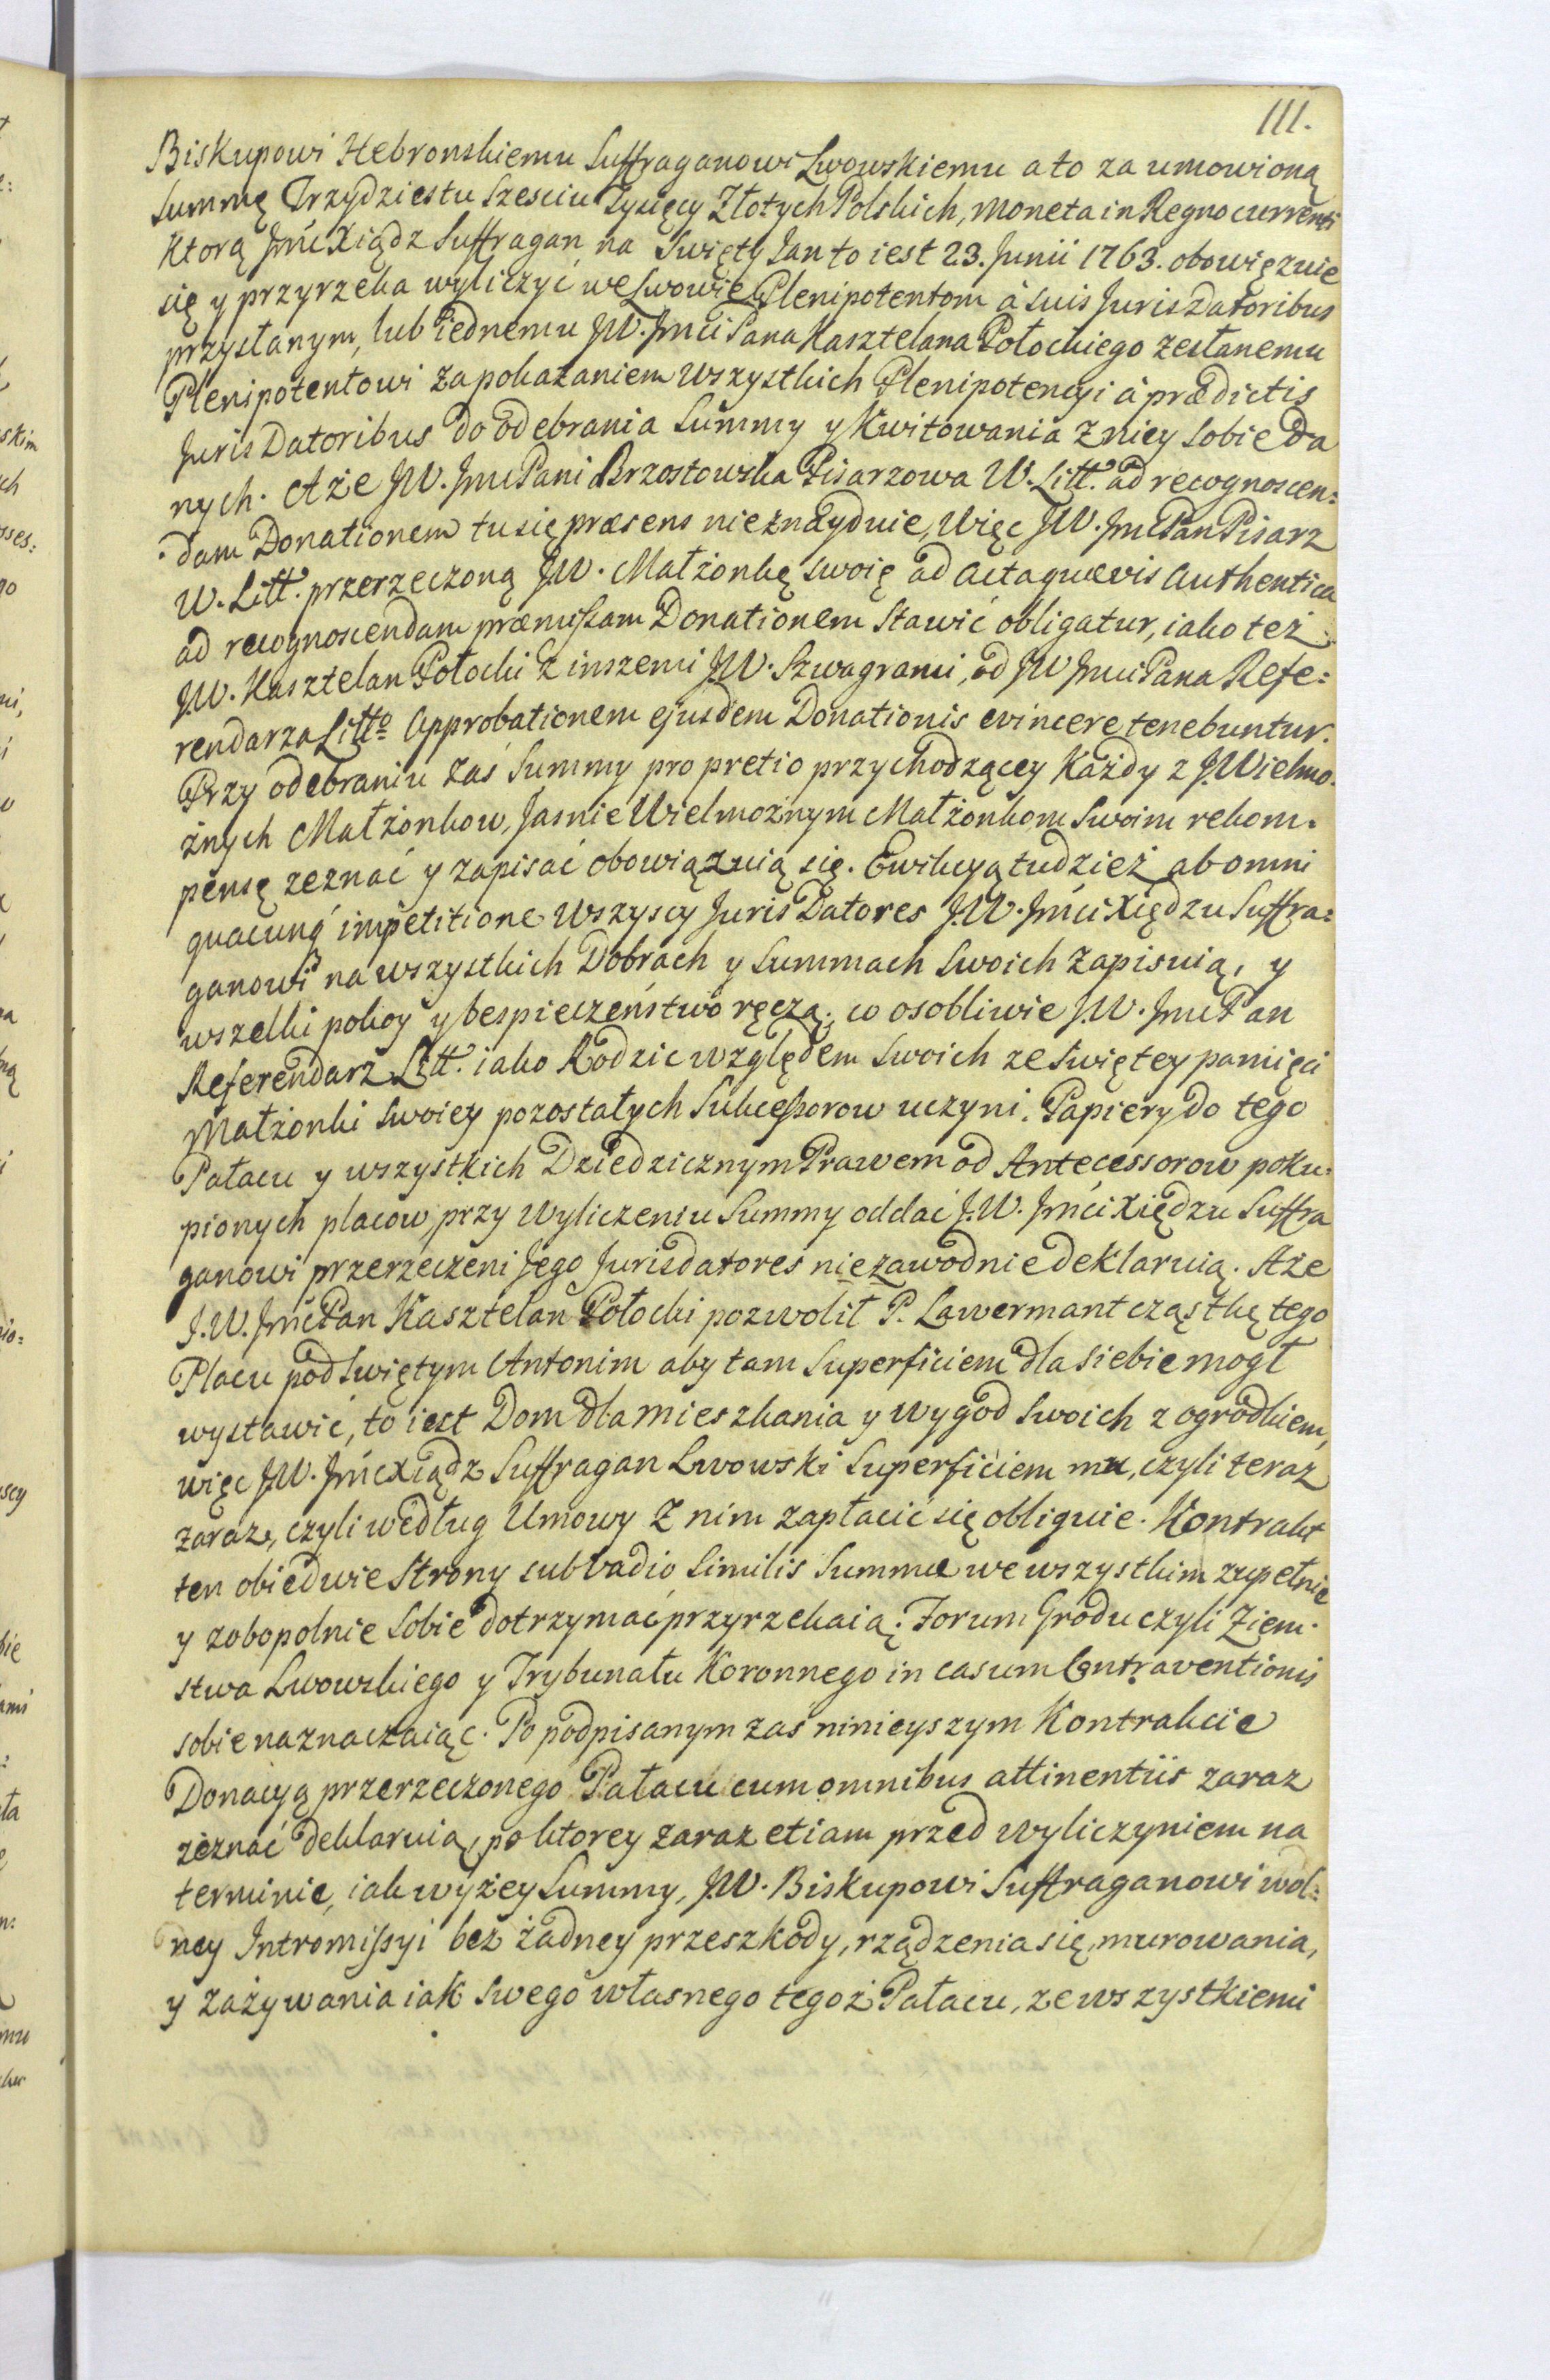 111.
Biskupowi Hebronskiemu Suffraganowi Lwowskiemu a to za umowioną
Summę Trzydziestu Szesciu Tysięcy Złotych Polskich, moneta in Regno currenti
Ktorą Jmć Xiądz Suffragan na Swięty Jan to iest 23. Junii 1763. obowięzuie
się y przyrzeka wyliczyć we Lwowie Plenipotentom à suis Juris Datoribus
przysłanym, lub iednemu JW. Jmći Pana Kasztelana Połockiego zesłanemu
Plenipotentowi za pokazaniem wszystkich Plenipotencyi à prædictis
Juris Datoribus do odebrania Summy y Kwitowania z niey sobie da
nych. A że JW. Jmć Pani Brzostowska Pisarzowa W. Litt. ad recognoscen:
dam Donationem tu się præsens nie znayduie, więc JW. Jmć Pan Pisarz
W. Litt. przerzeczoną JW. Małżonkę swoię ad Acta quævis Authentica
ad recognoscendam præmissam Donationem stawić obligatur, iako też
JW. Kasztelan Połocki z inszemi JW. Szwagrami, od JW Jmći Pana Refe:
rendarza Litto Approbationem ejusdem Donationis evincere tenebuntur.
Przy odebraniu zaś Summy pro pretio przychodzącey Każdy z J. Wielmo.
żnych Małżonkow, Jasnie Wielmożnym Małżonkom swoim rekom.
pensę zeznać y zapisać obowiązuią się. Ewikcyą tudzież ab omni
quacunq impetitione wszyscy Juris Datores J.W. Jmći Xiędzu Suffra:
ganowi na wszystkich Dobrach y Summach swoich zapisuią, y
wszelki pokoy y bespieczeństwo ręczą; co osobliwie J.W. Jmć Pan
Referendarz Litt. iako Rodzic względem swoich ze swiętey pamięci
Małżonki swoiey pozostałych Sukcessorow uczyni. Papiery do tego
Pałacu y wszystkich Dziedzicznym Prawem od Antecessorow poku:
pionych placow, przy wyliczeniu Summy oddać J.W. Jmći Xiędzu Suffra
ganowi przerzeczeni Jego Jurisdatores niezawodnie deklaruią. A że
J.W. Jmć Pan Kasztelan Połocki pozwolił P. Lawermant cząstkę tego
Placu pod Swiętym Antonim aby tam Superficiem dla siebie mogł
wystawić, to iest Dom dla mieszkania y wygod swoich z ogrodkiem,
więc JW. Jmć Xiądz Suffragan Lwowski Superficiem mu, czyli teraz
zaraz, czyli według Umowy z nim zapłacić się obliguie. Kontrakt
ten obiedwie strony sub vadio similis Summæ we wszystkim zupełnie
y zobopolnie sobie dotrzymać przyrzekaią: Forum Grodu czyli Ziem.
stwa Lwowskiego y Trybunału Koronnego in casum Contraventionis
sobie naznaczaiąc. Po podpisanym zaś ninieyszym Kontrakcie
Donacyą przerzeczonego Pałacu cum omnibus attinentiis zaraz
zeznać deklaruią, po ktorey zaraz etiam przed wyliczyniem na
terminie, iak wyżey Summy, JW. Biskupowi Suffraganowi wol:
ney Intromissyi bez żadney przeszkody, rządzenia się, murowania,
y zażywania iak swego własnego tegoż Pałacu, ze wszystkiemi